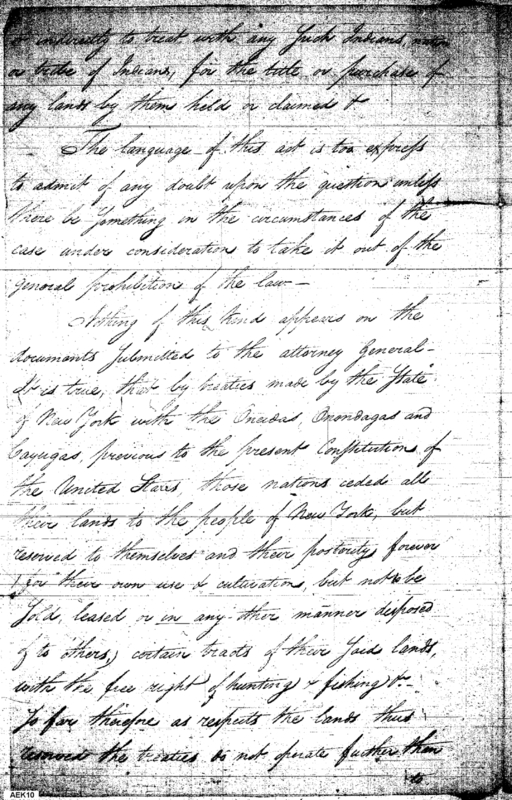 or indirectly to treat with any such Indians, nation
or tribe of Indians, for the title or purchase of
any lands by them held or claimed &
The language of this act is too express
to admit of any doubt upon the question unless
there be something in the circumstances of the
case under consideration to take it out of the
general prohibition of the law—
Nothing of this kind appears on the
documents submitted to the attorney General—
It is true, that by treaties made by the State
of New York with the Oneidas, Onondagas and
Cayugas, previous to the present Constitution of
the United States, those nations ceded all
their lands to the people of New York, but
reserved to themselves and their posterity forever
(for their own use & cultivation, but not to be
sold, leased or in any other manner disposed
of to others,) certain tracts of their said lands,
with the free right of hunting & fishing &c—
So far therefore as respects the lands thus
reserved the treaties do not operate further than
to
AEK10